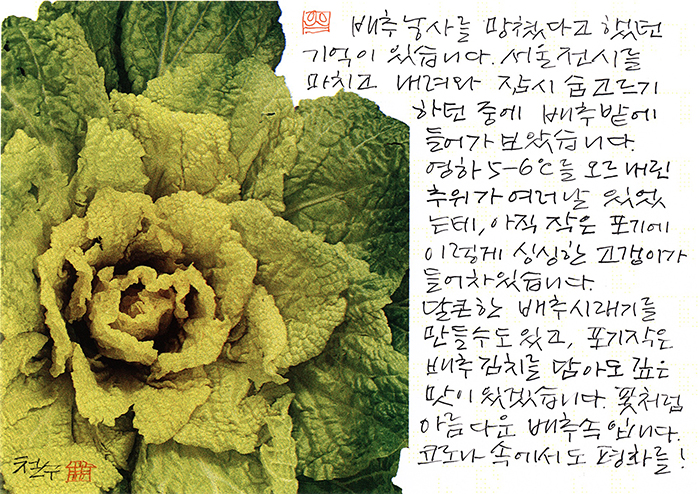 배추농사를 망쳤다고 했던
기억이 있습니다. 서울전시를
마치고 내려와 잠시 숨고르기
하던 중에 배추밭에
들어가 보았습니다.
영하 5-6℃를 오르내린
추위가 여러날 있었
는데, 아직 작은 포기에
이렇게 싱싱한 고갱이가
들어차있습니다.
달콘한 배추시래기를
만들수도 있고, 포기작은
배추김치를 담아도 깊은
맛이 있겠습니다. 꽃처럼
아름다운 배추속입니다.
코로나 속에서도 평화를!
철수